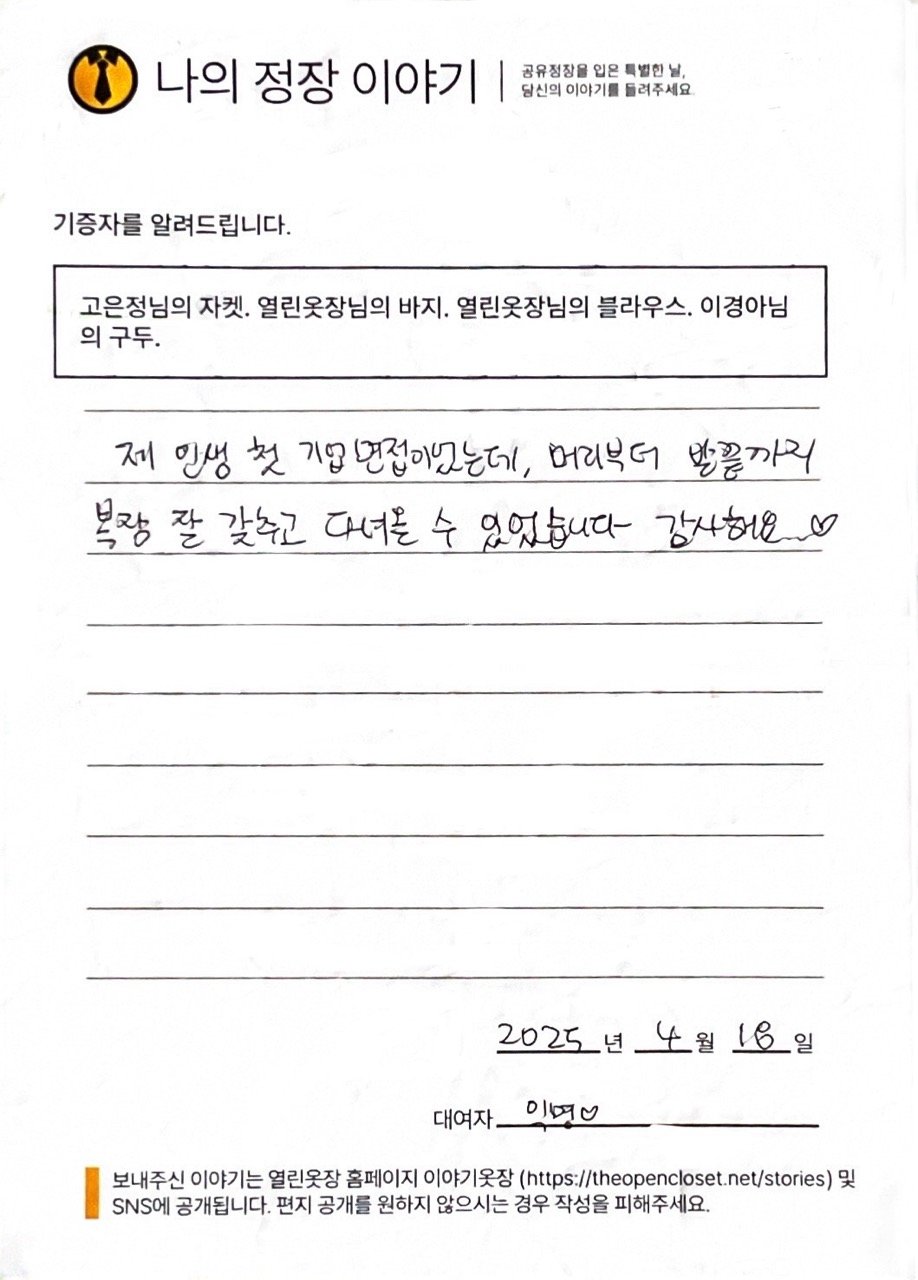 나의 정장 이야기
공유정장을 입은 특별한 날,
당신의 이야기를 들려주세요.
기증자를 알려드립니다.
고은정님의 자켓. 열린옷장님의 바지. 열린옷장님의 블라우스. 이경아님
의 구두.
제 인생 첫 기업면접이었는데, 머리부터 발끝까지
복장 잘 갖추고 다녀올 수 있었습니다 감사해요...♡
2025년 4월 18일
대여자 익명♡
보내주신 이야기는 열린옷장 홈페이지 이야기옷장 (https://theopencloset.net/stories) 및
SNS에 공개됩니다. 편지 공개를 원하지 않으시는 경우 작성을 피해주세요.